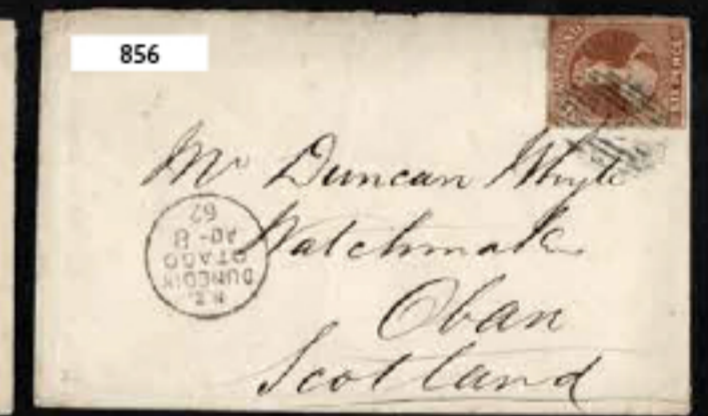 856
ZEALAND
SIX PENCE
Mr Duncan Whyte
Watchmaker
Oban
Scotland
N.Z.
DUNEDIN
OTAGO
AU-8
62